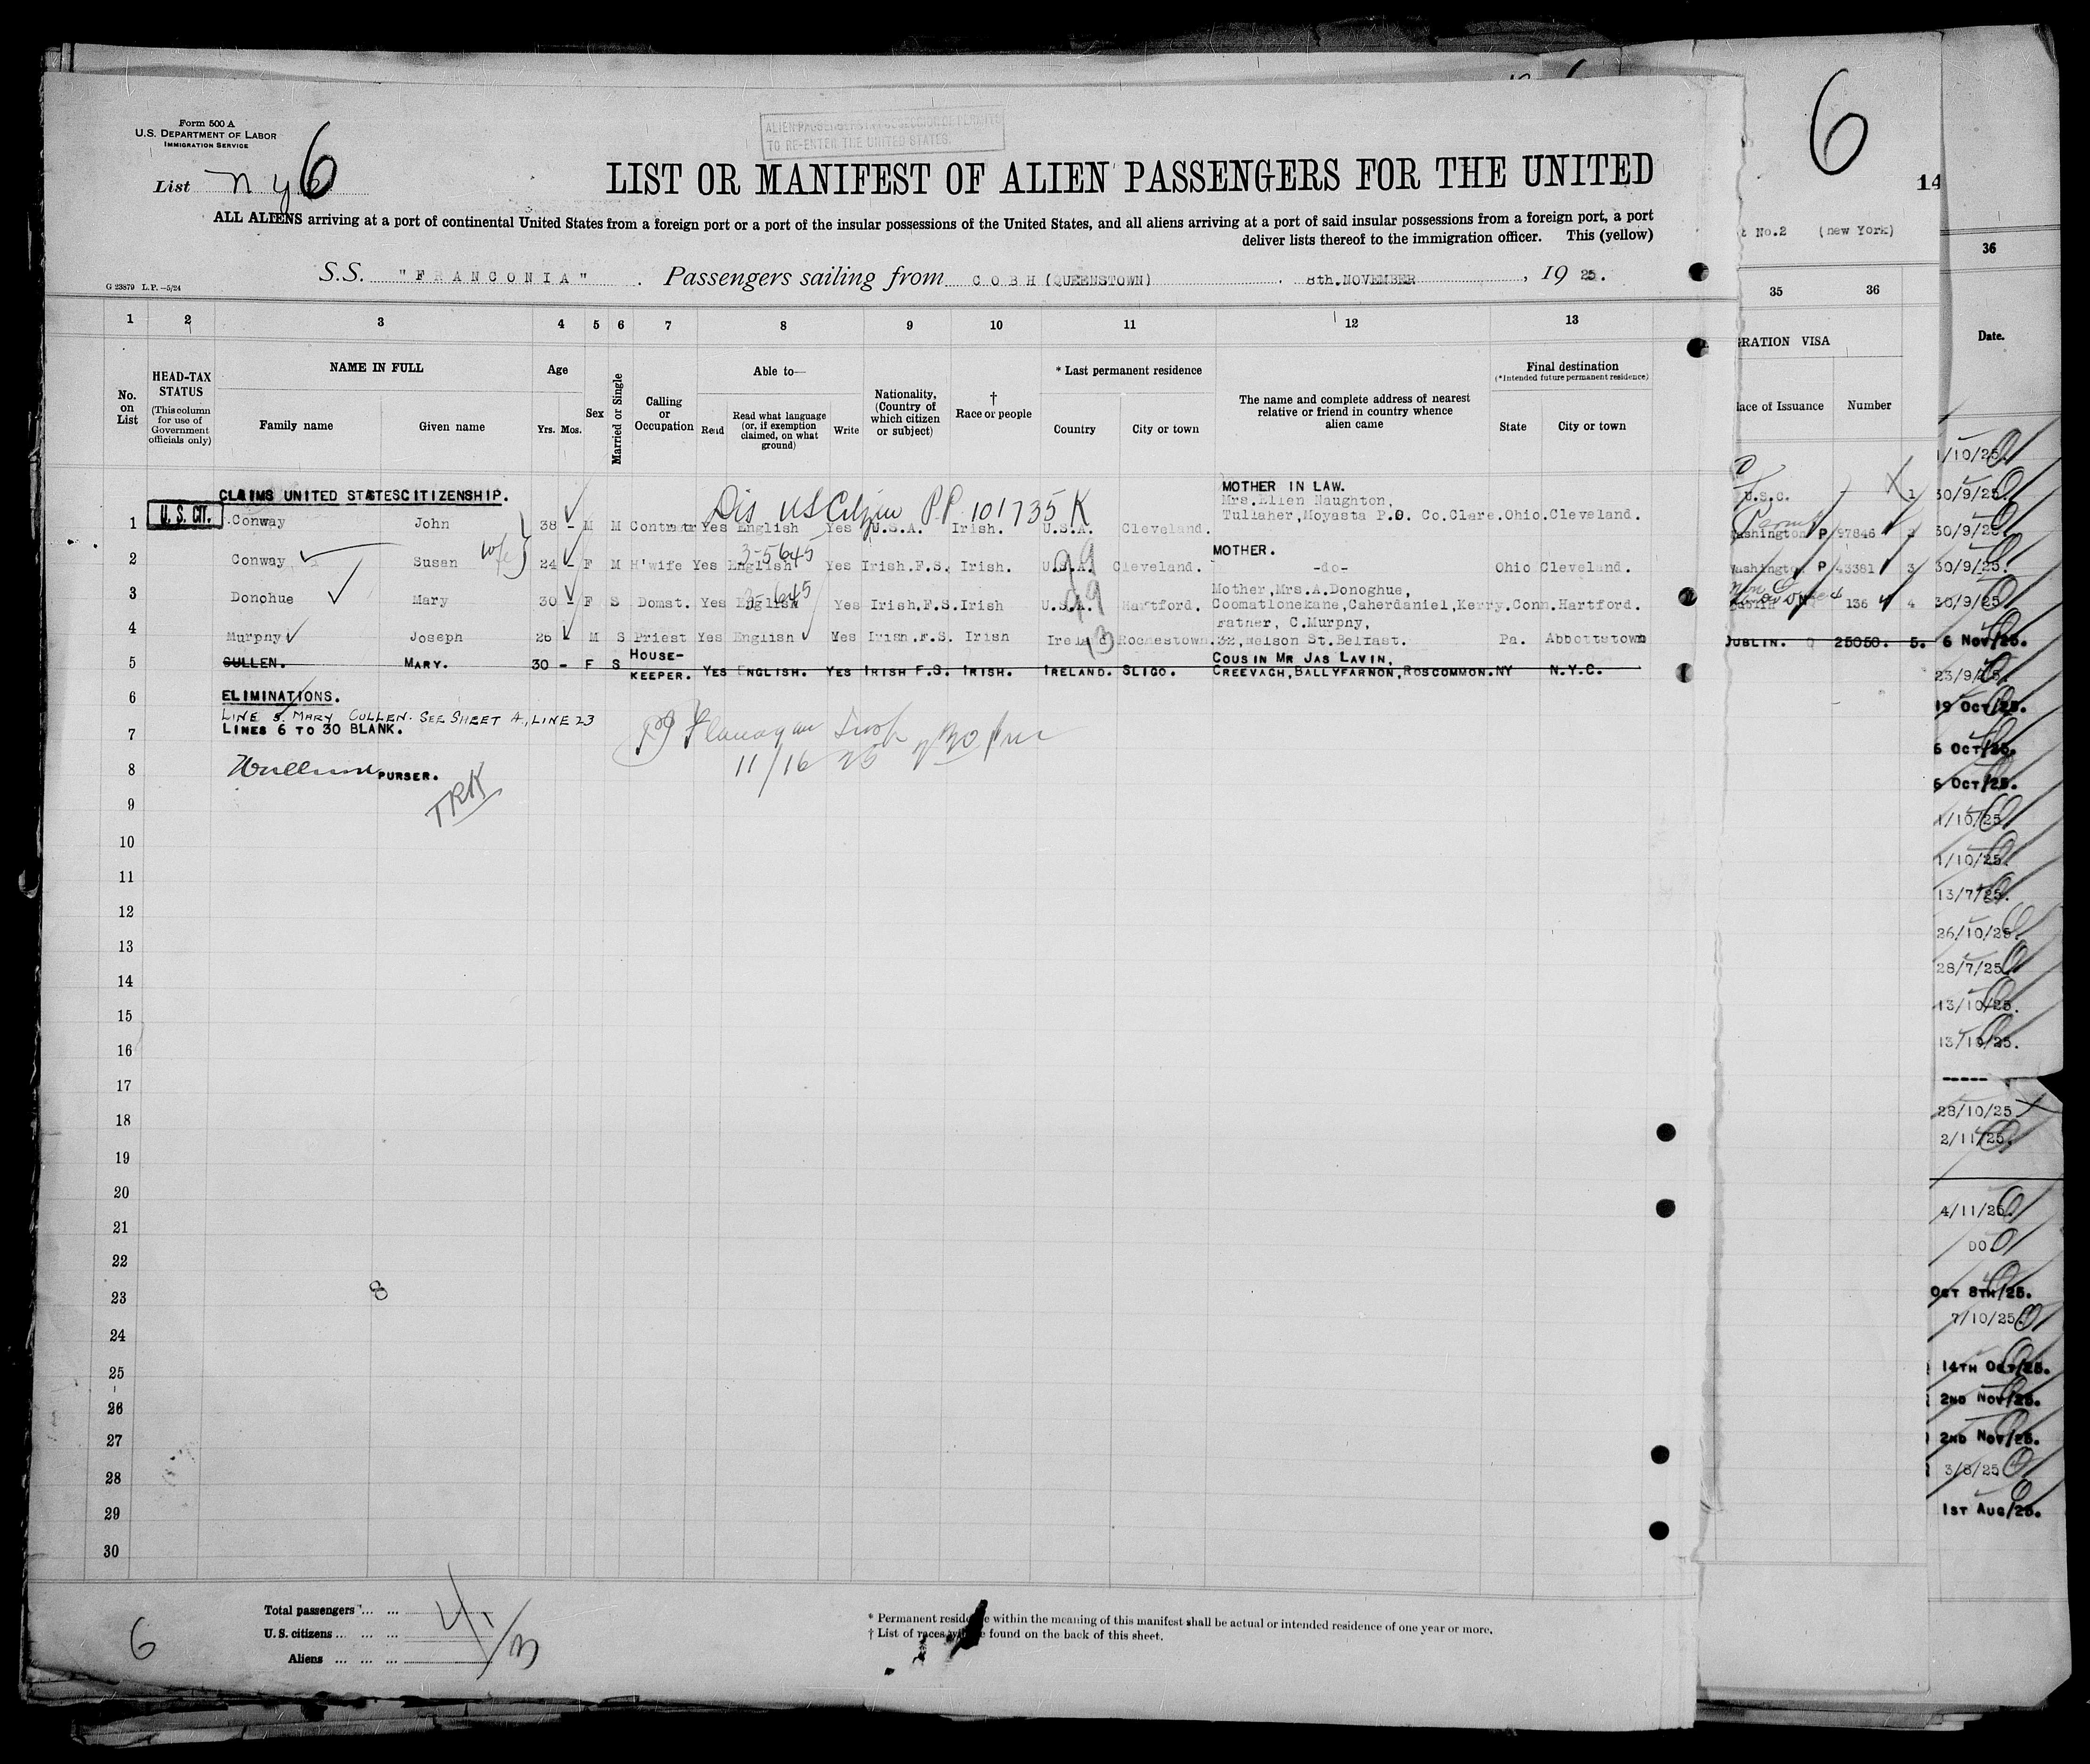 Form 500 A
U.S. DEPARTMENT OF LABOR
IMMIGRATION SERVICE
List 6
ALIEN PASSENGERS IN POSSESSION OF PERMITS
TO RE-ENTER THE UNITED STATES.
LIST OR MANIFEST OF ALIEN PASSENGERS FOR THE UNITED
ALL ALIENS arriving at a port of continental United States from a foreign port or a port of the insular possessions of the United States, and all aliens arriving at a port of said insular possessions from a foreign port, a port
deliver lists thereof to the immigration officer. This (yellow)
S.S. "FRANCONIA" . Passengers sailing from COBH (QUEENSTOWN) . 8th.NOVEMBER , 19 25.
G 23879 L.P.—5/24
1 2 3 4 5 6 7 8 9 10 11 12 13
No. on List
HEAD-TAX STATUS (This column for use of Government officials only)
NAME IN FULL
Family name Given name
Age
Yrs. Mos.
Sex
Married or Single
Calling or Occupation
Able to—
Read Read what language (or, if exemption claimed, on what ground) Write
Nationality, (Country of which citizen or subject)
† Race or people
* Last permanent residence
Country City or town
The name and complete address of nearest relative or friend in country whence alien came
Final destination
(*Intended future permanent residence)
State City or town
CLAIMS UNITED STATES CITIZENSHIP.
Dis US Citizen P.P. 101735 K
MOTHER IN LAW.
Mrs.Ellen Naughton,
1 U.S. CIT. Conway John 38 - M M Contratr Yes English Yes U.S.A. Irish. U.S.A. Cleveland. Tullaher,Moyasta P.O. Co.Clare. Ohio. Cleveland.
3-5645
MOTHER.
2 Conway Susan wife 24 - F M H'wife Yes English Yes Irish.F.S. Irish. U.S.A. Cleveland. -do- Ohio Cleveland.
99
Mother,Mrs.A.Donoghue,
3 Donohue Mary 30 - F S Domst. Yes English Yes Irish.F.S. Irish U.S.A. Hartford. Coomatlonekane,Caherdaniel,Kerry. Conn. Hartford.
99
Father, C.Murphy,
4 Murphy Joseph 26 M S Priest Yes English Yes Irish.F.S. Irish Ireld Rochestown. 32,Nelson St.Belfast. Pa. Abbottstown
13
5 CULLEN. MARY. 30 - F S HOUSE-KEEPER. YES ENGLISH. YES IRISH F.S. IRISH. IRELAND. SLIGO. COUSIN MR JAS LAVIN, CREEVAGH,BALLYFARNON,ROSCOMMON. NY N.Y.C.
6 ELIMINATIONS.
LINE 5. MARY CULLEN. SEE SHEET A, LINE 23
7 LINES 6 TO 30 BLANK.
Flanagan Insp
11/16 25
8 PURSER.
TRK
9
10
11
12
13
14
15
16
17
18
19
20
21
22
23 8
24
25
26
27
28
29
30
6
Total passengers ... ... 4
U. S. citizens ... ... ... 1
Aliens ... ... ... 3
* Permanent residence within the meaning of this manifest shall be actual or intended residence of one year or more.
† List of races will be found on the back of this sheet.
6
No.2 (new York)
35 36
GRATION VISA
lace of Issuance Number
U.S.C. 1
Permit
ashington P 97846 2
Washington P 43381 3
136 4
DUBLIN. Q 25050. 5.
14
36
Date.
1/10/25.
30/9/25
30/9/25
30/9/25
30/9/25
6 NOV/25.
23/9/25
19 OCT/25.
6 OCT/25.
6 OCT/25.
1/10/25
1/10/25.
13/7/25.
26/10/25.
28/7/25
13/10/25.
13/10/25.
-----
28/10/25
2/11/25.
4/11/25
DO
OCT 8TH/25.
7/10/25
14TH OCT/25.
2ND NOV/25.
2ND NOV/25.
3/8/25
1ST AUG/25.